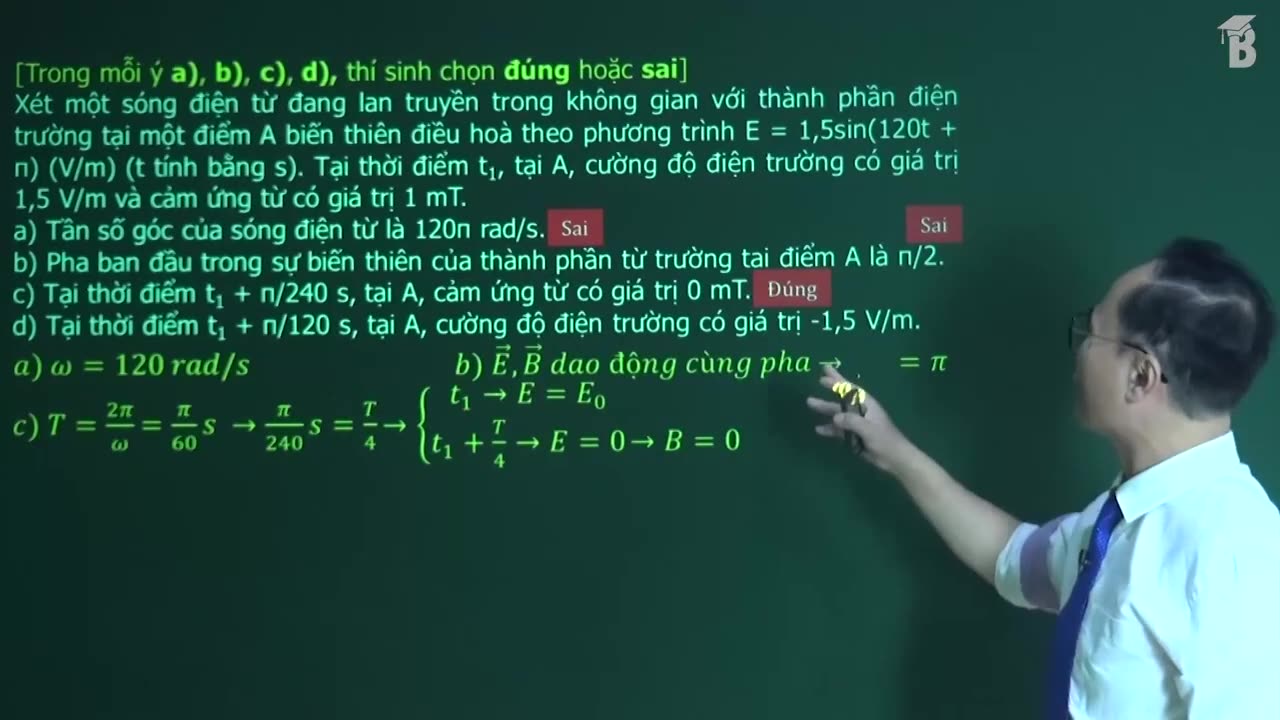 [Trong mỗi ý a), b), c), d), thí sinh chọn đúng hoặc sai]
Xét một sóng điện từ đang lan truyền trong không gian với thành phần điện
trường tại một điểm A biến thiên điều hoà theo phương trình E = 1,5sin(120t +
π) (V/m) (t tính bằng s). Tại thời điểm t₁, tại A, cường độ điện trường có giá trị
1,5 V/m và cảm ứng từ có giá trị 1 mT.
a) Tần số góc của sóng điện từ là 120π rad/s. Sai
Sai
b) Pha ban đầu trong sự biến thiên của thành phần từ trường tại điểm A là π/2.
c) Tại thời điểm t₁ + π/240 s, tại A, cảm ứng từ có giá trị 0 mT. Đúng
d) Tại thời điểm t₁ + π/120 s, tại A, cường độ điện trường có giá trị -1,5 V/m.
a) ω = 120 rad/s
b) E⃗, B⃗ dao động cùng pha → = π
c) T = 2π/ω = π/60 s → π/240 s = T/4 → { t₁ → E = E₀
t₁ + T/4 → E = 0 → B = 0
B